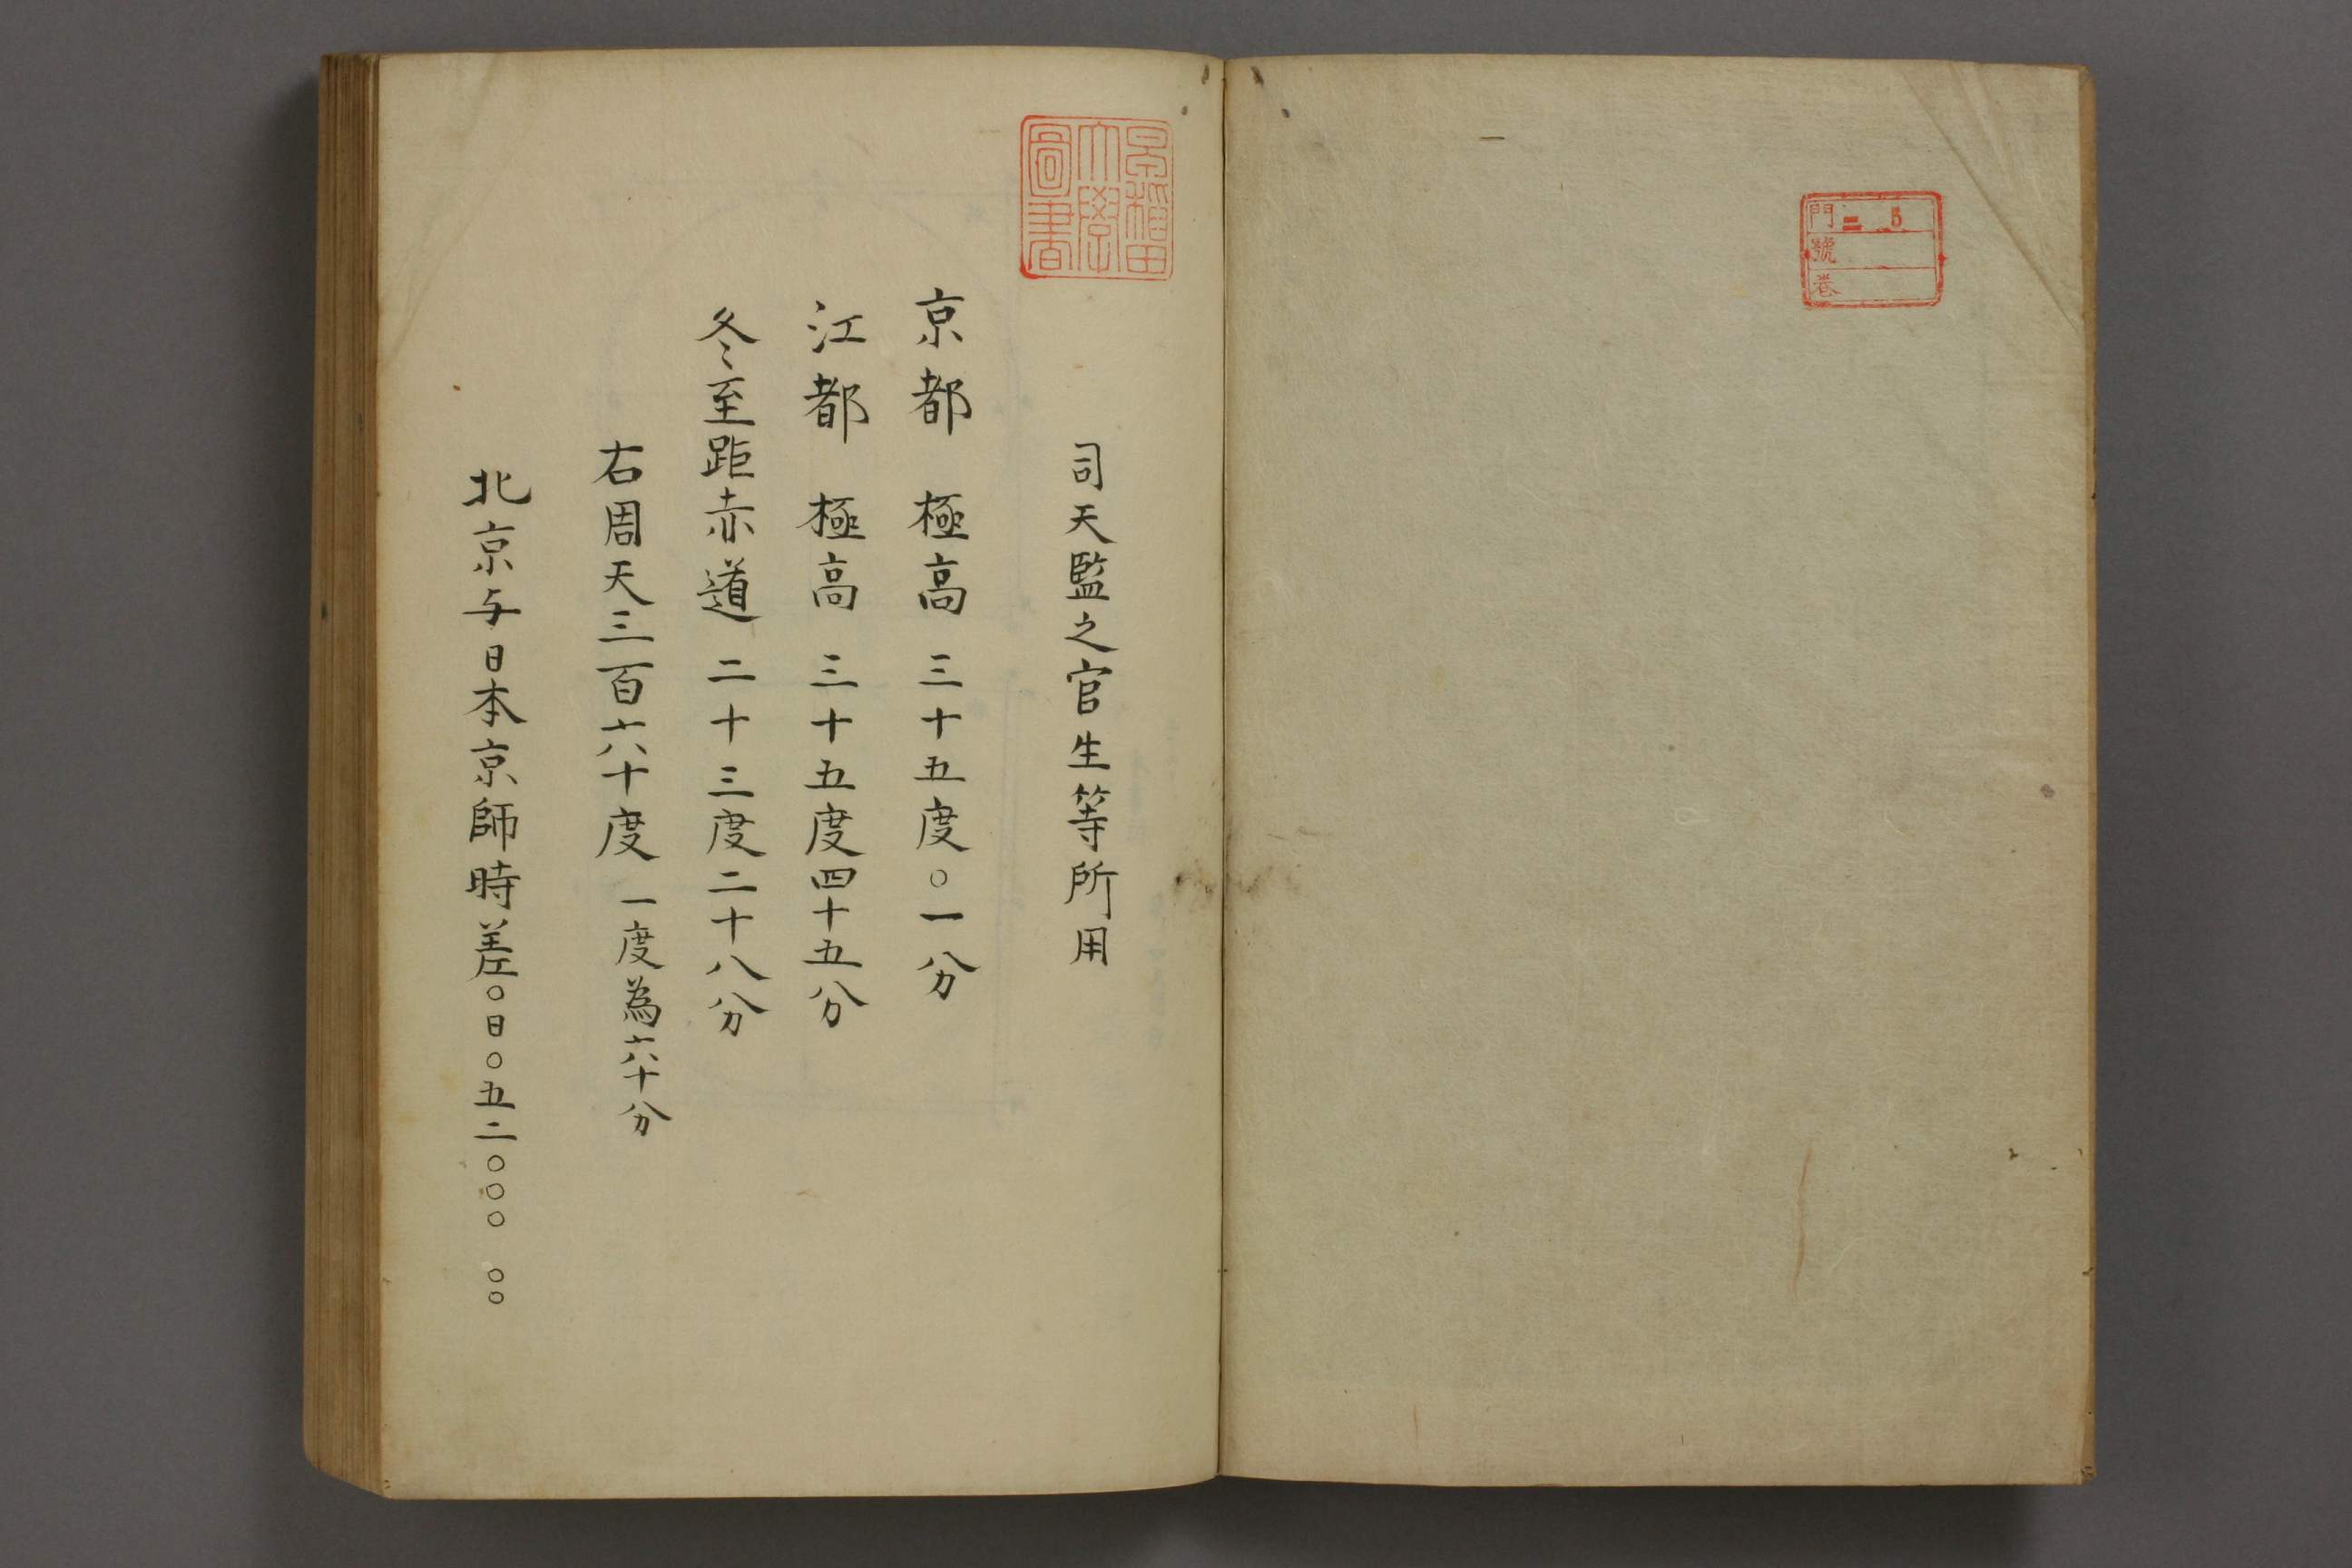 門 二 5
號
卷
早稲田
大學
圖書
司天監之官生等所用
京都 極高 三十五度〇一分
江都 極高 三十五度四十五分
冬至距赤道 二十三度二十八分
右周天三百六十度 一度為六十分
北京与日本京師時差〇日〇五二〇〇〇 〇〇